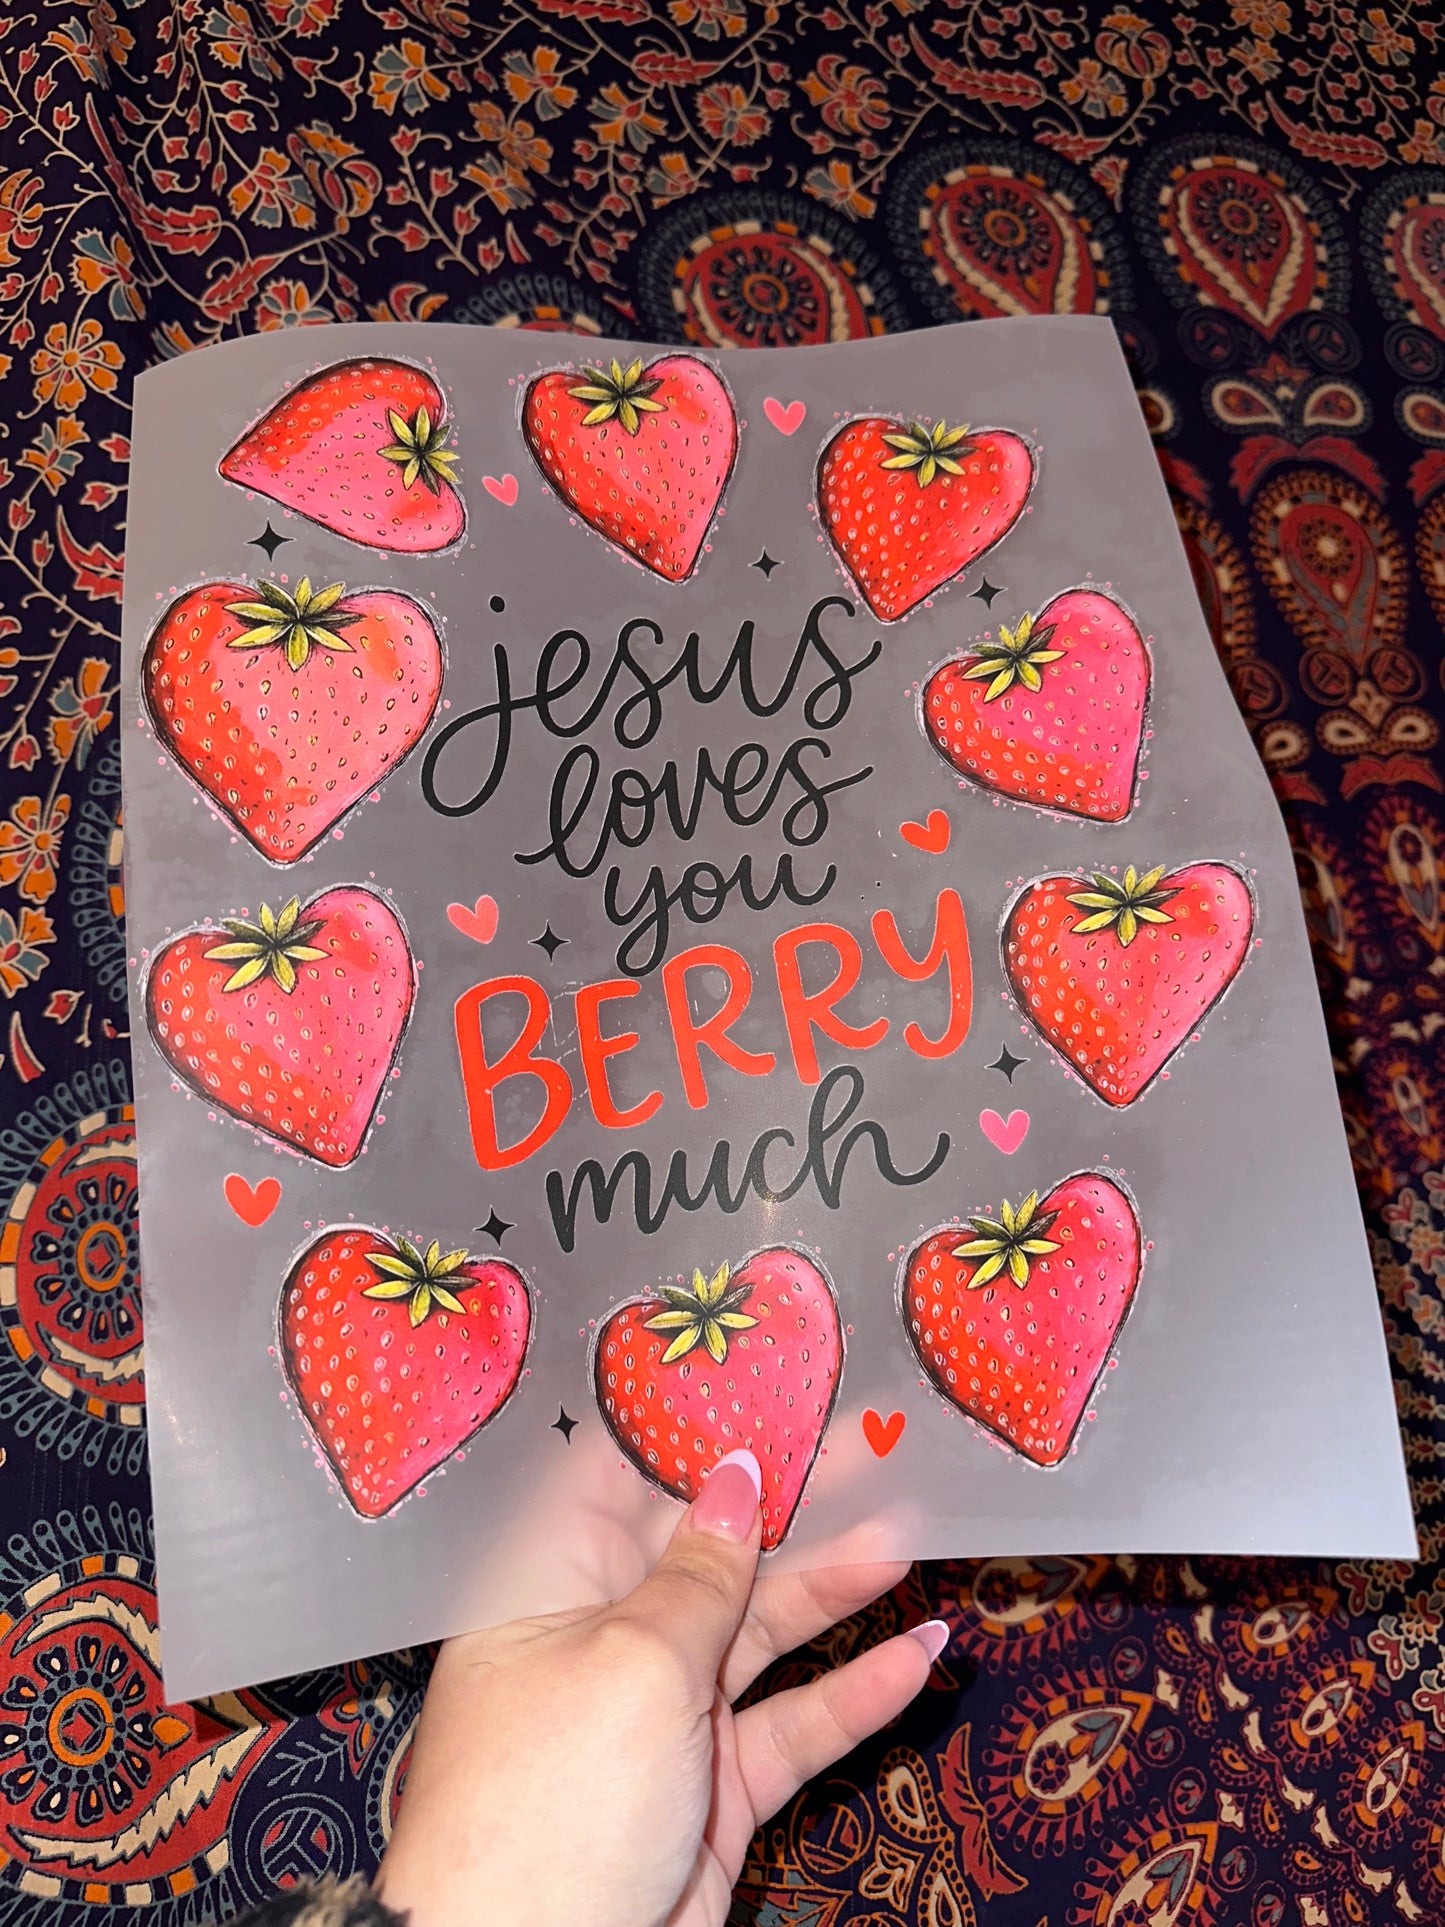 jesus
loves
you
BERRY
much